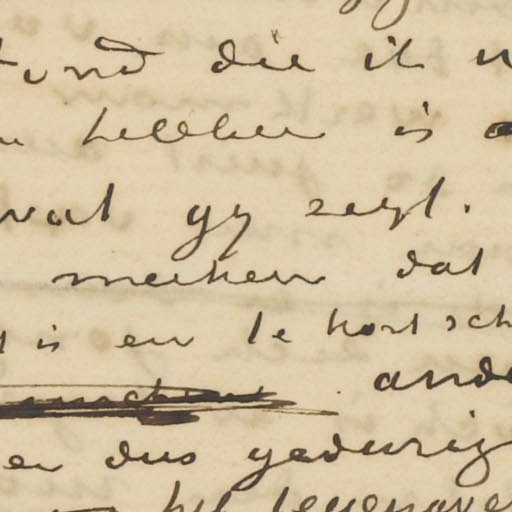 die ik
hebben is
wat gy zegt.
merken dat
is en te kort sch
ande
en dus gedurig
het tegenove